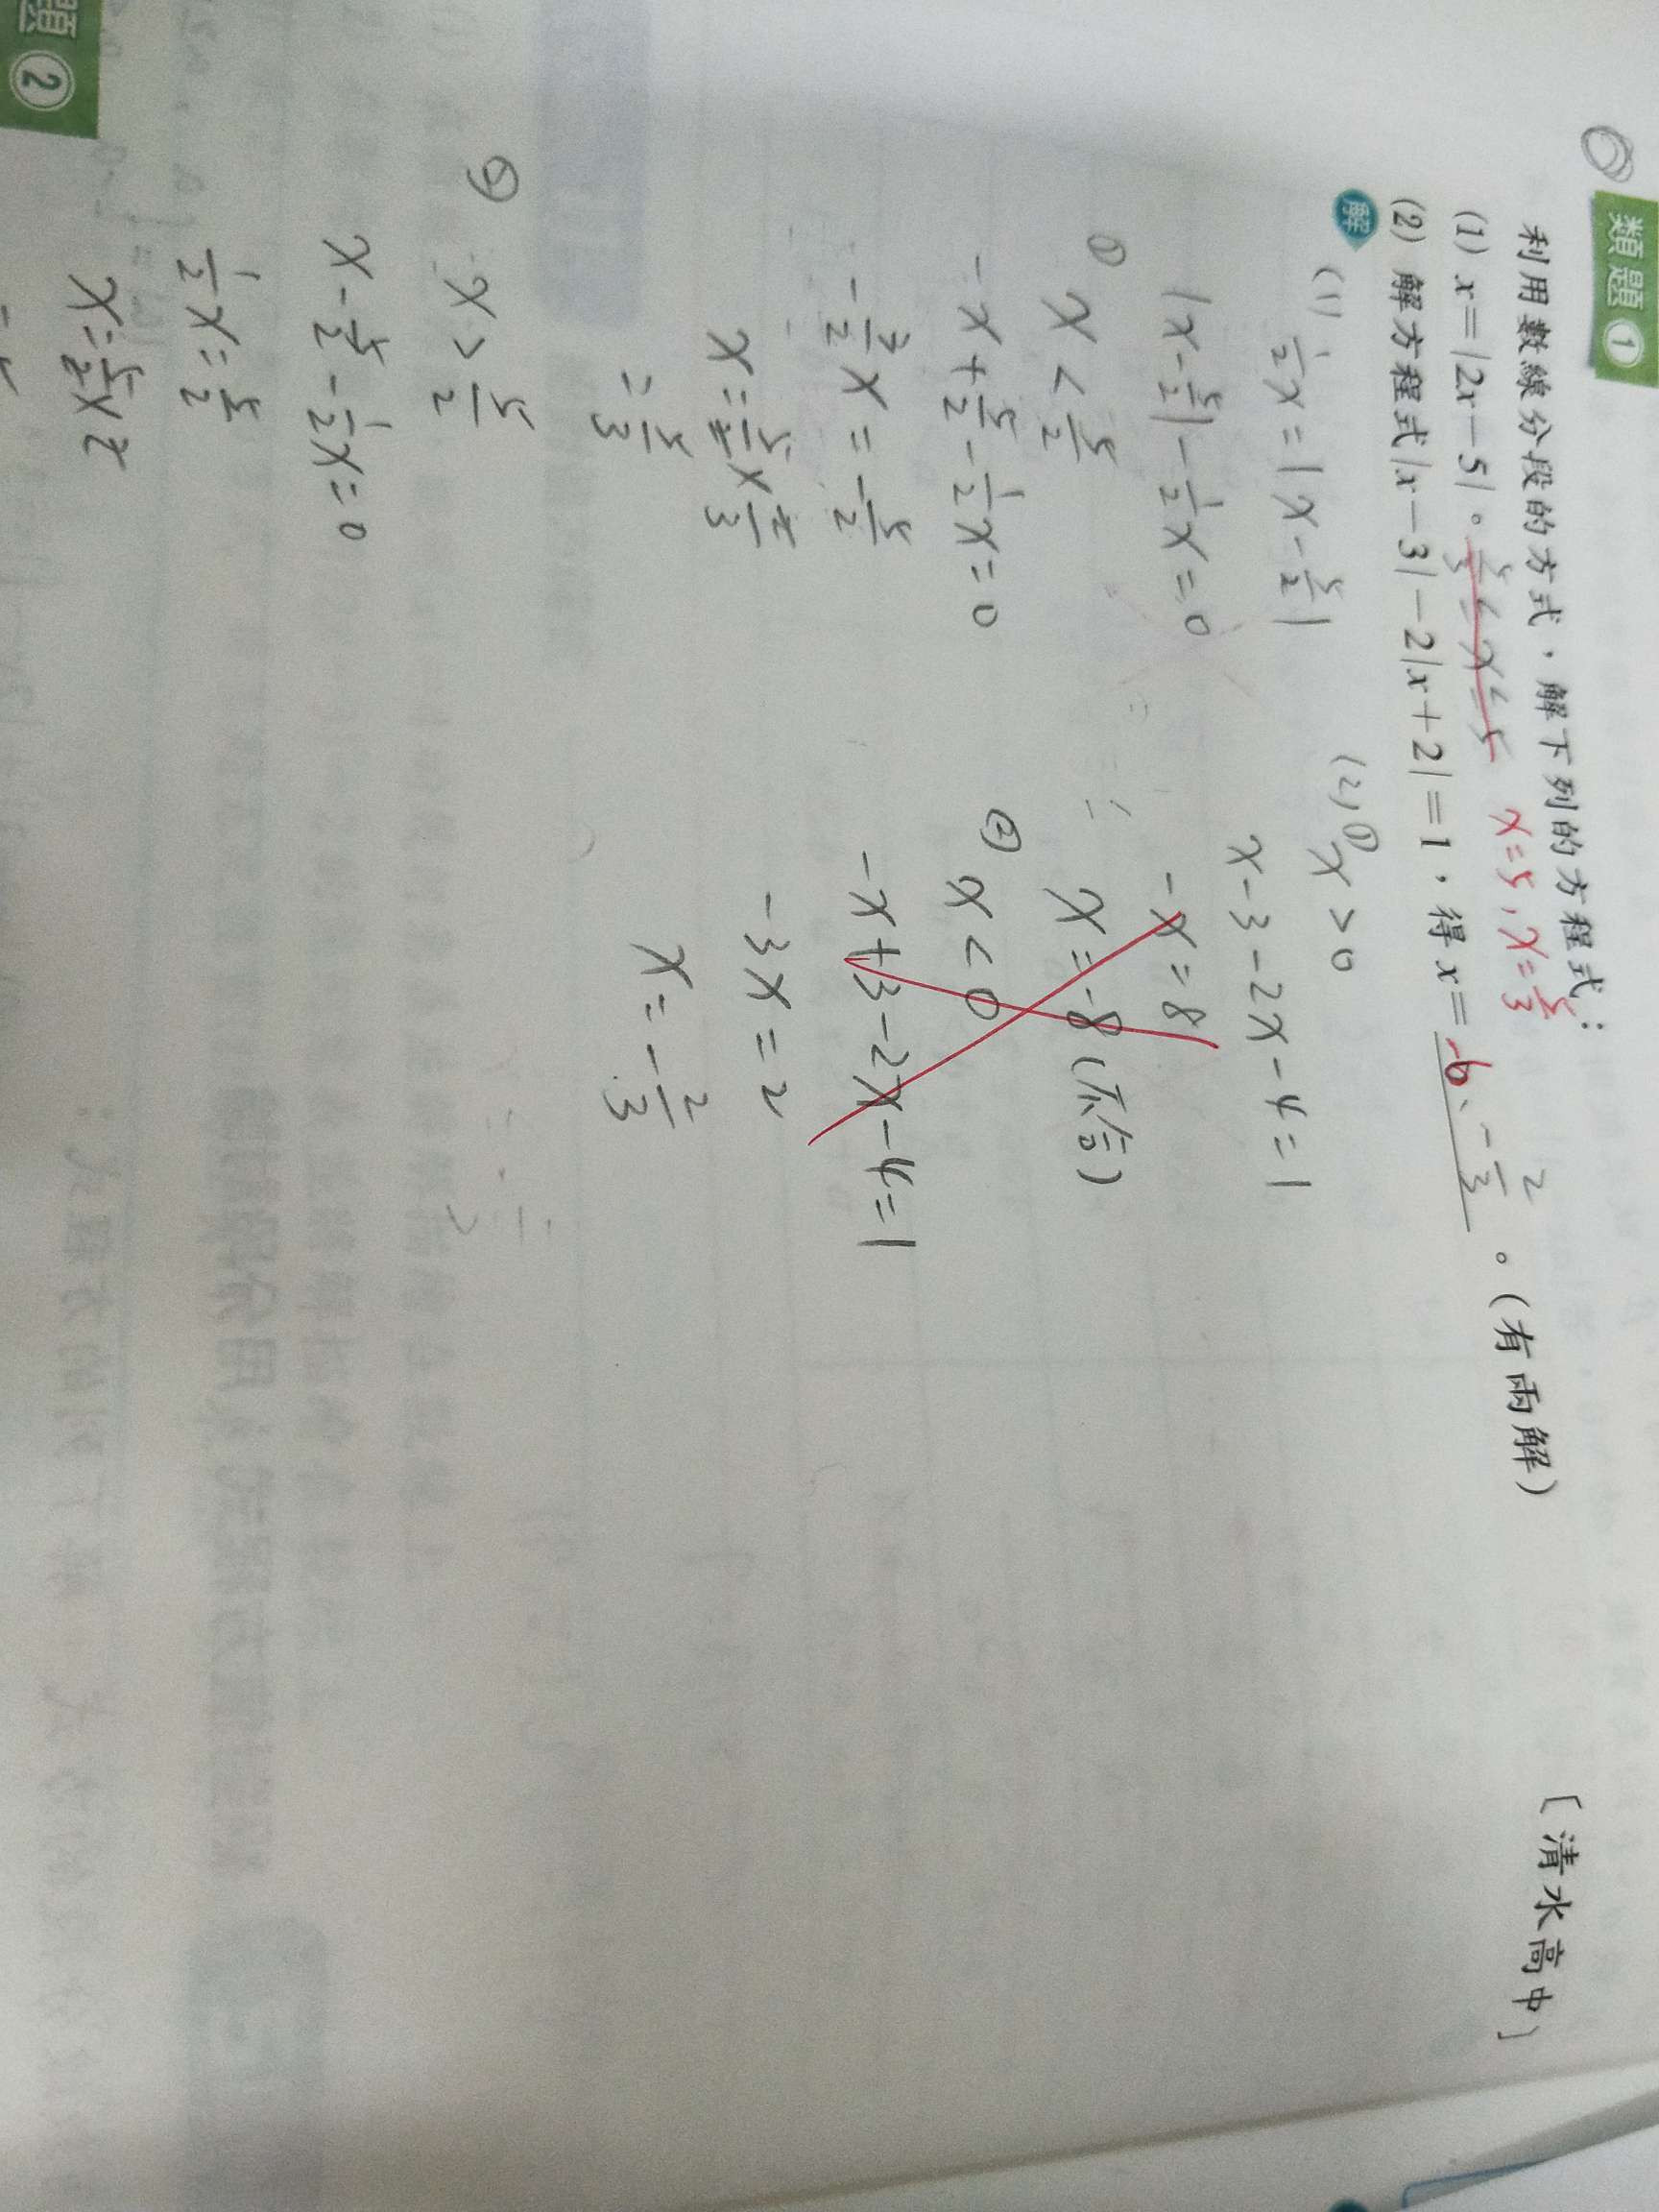 類題 1
利用數線分段的方式，解下列的方程式：
(1) x=|2x-5|。 5/3 ≤ x ≤ 5 x=5, x=5/3
(2) 解方程式|x-3|-2|x+2|=1，得 x= -6、-2/3 。(有兩解)
〔清水高中〕
解
(1)
1/2x=|x-5/2|
|x-5/2|-1/2x=0
① x<5/2
-x+5/2-1/2x=0
-3/2x=-5/2
x=5/2×2/3
=5/3
② x>5/2
x-5/2-1/2x=0
1/2x=5/2
x=5/2×2
(2) ① x>0
x-3-2x-4=1
-x=8
x=-8(不合)
② x<0
-x+3-2x-4=1
-3x=2
x=-2/3
題 2